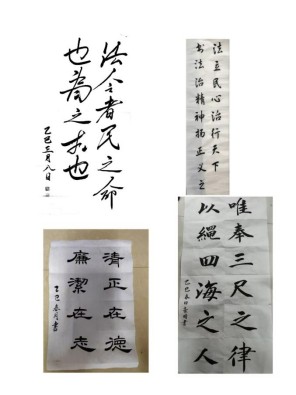 法令者民之命
也為之本也
乙巳三月八日
法立民心治行天下
书法治精神扬正义之
清正在德
廉潔在志
乙巳春月書
唯奉三尺之律
以繩四海之人
乙巳春